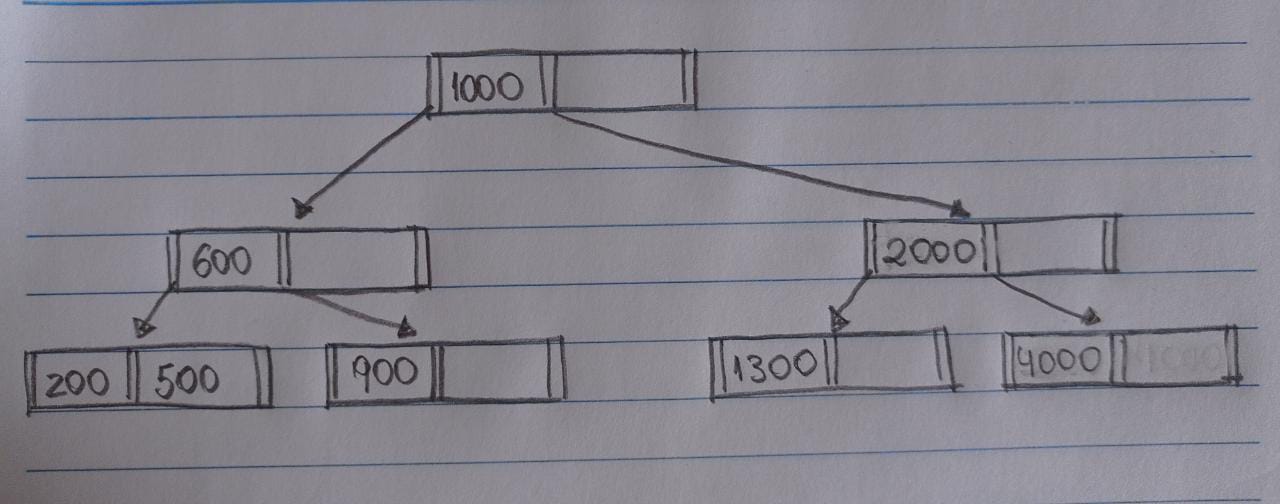 1000
600 2000
200 500 900 1300 4000